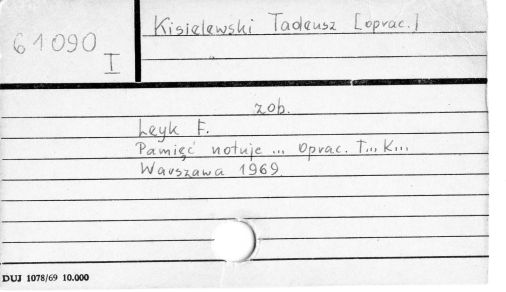 61090
I
Kisielewski Tadeusz [oprac.]
zob.
Leyk F.
Pamięć notuje ... Oprac. T... K...
Warszawa 1969.
DUJ 1078/69 10.000